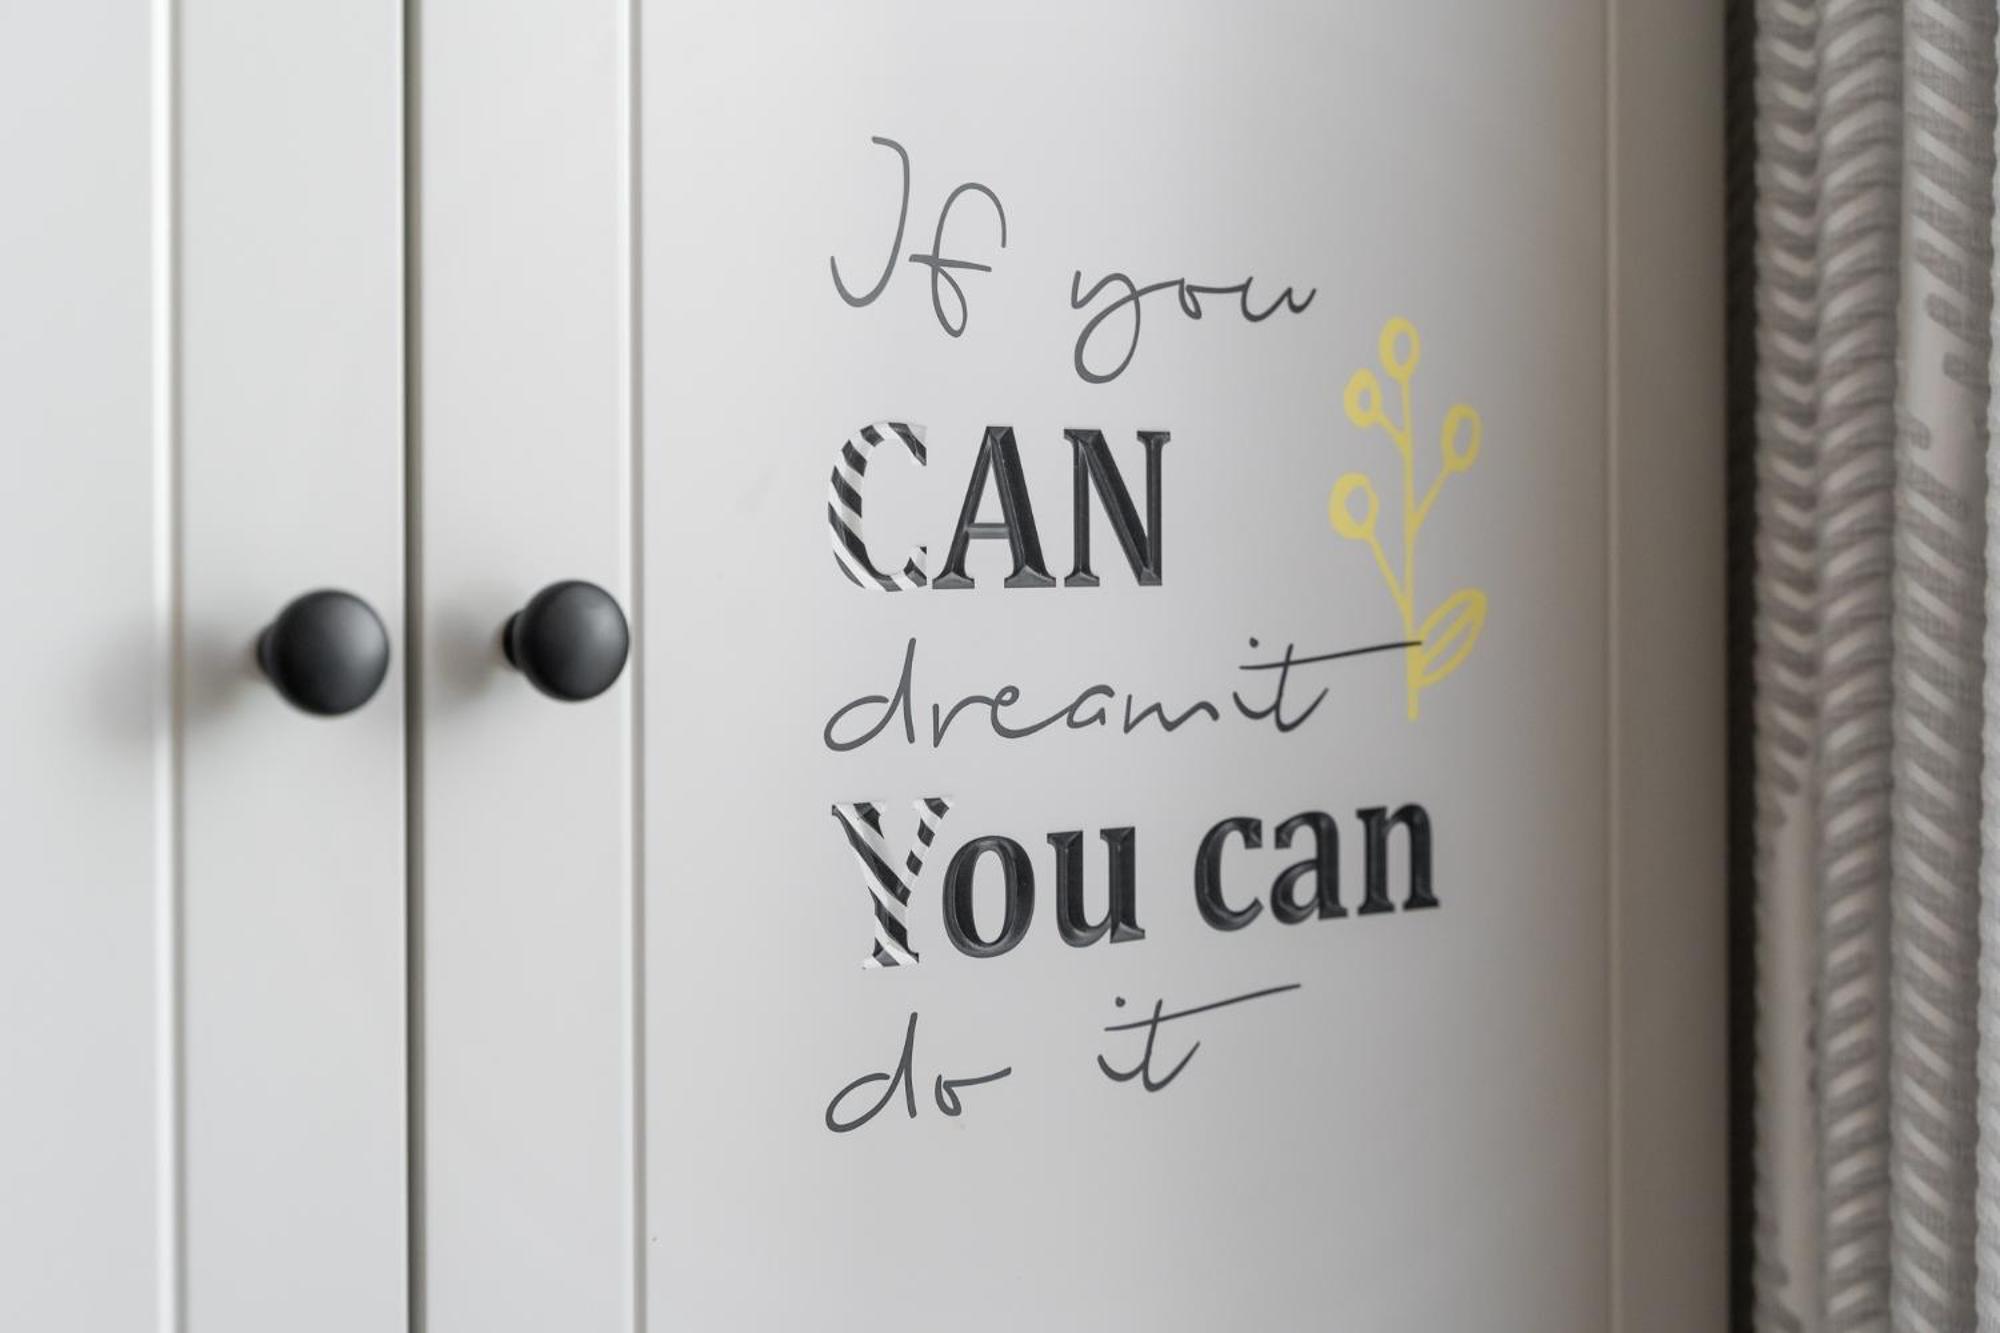 If you
CAN
dream it
You can
do it